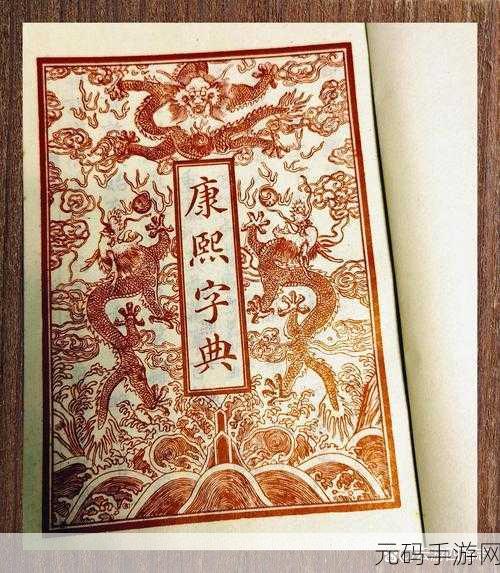 康熙字典
元码手游网